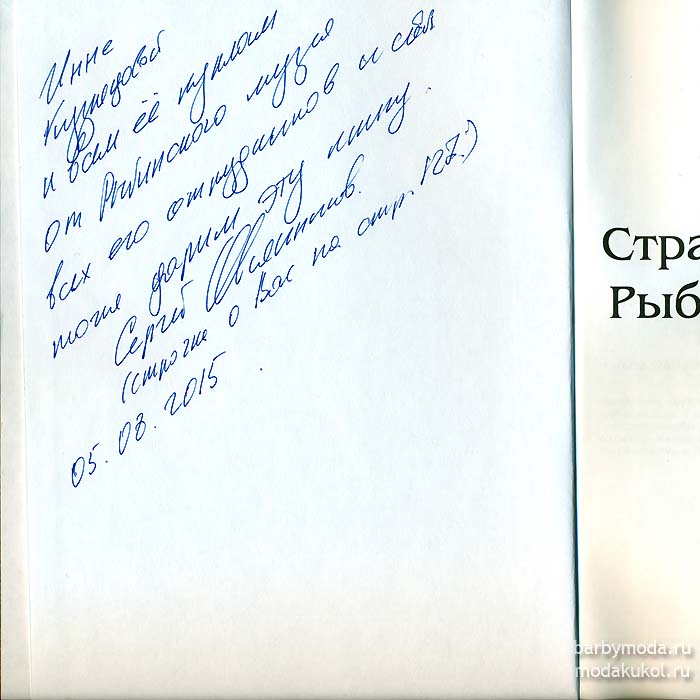 Инне
Кузнецовой
и всем её куклам
от Рыбинского музея
всех его сотрудников и сёл
тоже дарим эту книгу.
Сергей Овсянников.
(строчка о Вас на стр. 127:)
05.08.2015
Стра
Рыб
barbymoda.ru
modakukol.ru